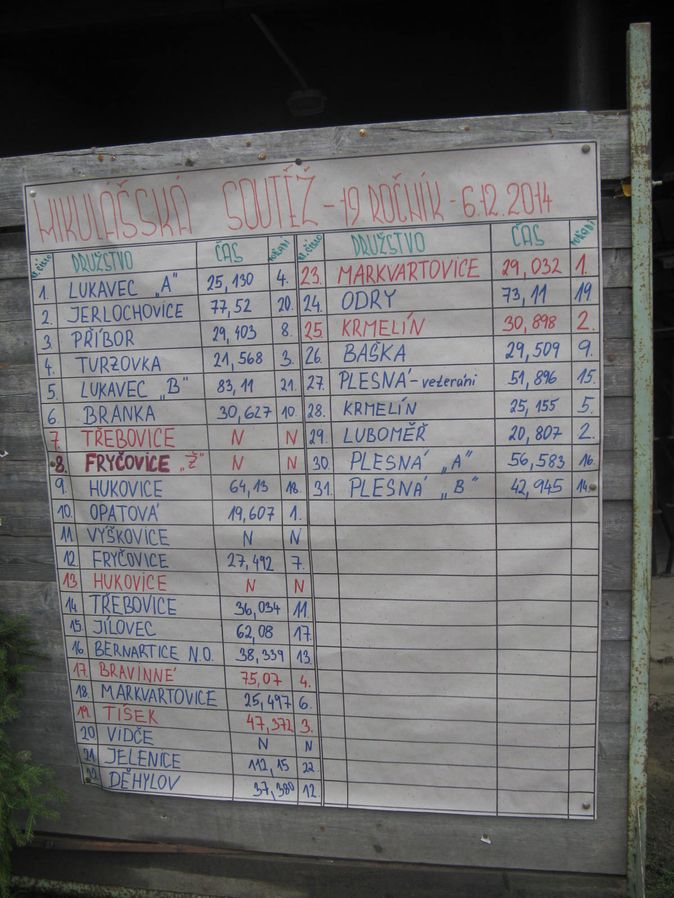 MIKULÁŠSKÁ SOUTĚŽ - 19 ROČNÍK - 6.12.2014
S.ČÍSLO DRUŽSTVO ČAS POŘADÍ
1. LUKAVEC „A" 25,130 4.
2. JERLOCHOVICE 77,52 20.
3 PŘÍBOR 29,403 8.
4. TURZOVKA 21,568 3.
5. LUKAVEC „B" 83,11 21.
6. BRANKA 30,627 10.
7. TŘEBOVICE N N
8. FRYČOVICE „Ž" N N
9. HUKOVICE 64,13 18.
10. OPATOVÁ 19,607 1.
11 VÝŠKOVICE N N
12 FRYČOVICE 27,492 7.
13 HUKOVICE N N
14 TŘEBOVICE 36,034 11.
15. JÍLOVEC 62,08 17.
16 BERNARTICE N.O. 38,339 13.
17. BRAVINNÉ 75,07 4.
18. MARKVARTOVICE 25,497 6.
19. TÍSEK 47,372 3.
20 VIDČE N N
21. JELENICE 112,15 22.
22. DĚHYLOV 37,380 12
S.ČÍSLO DRUŽSTVO ČAS POŘADÍ
23. MARKVARTOVICE 29,032 1.
24. ODRY 73,11 19
25. KRMELÍN 30,898 2.
26. BAŠKA 29,509 9.
27. PLESNÁ - veteráni 51,896 15.
28. KRMELÍN 25,155 5.
29. LUBOMĚŘ 20,807 2.
30. PLESNÁ „A" 56,583 16.
31. PLESNÁ „B" 42,945 14.